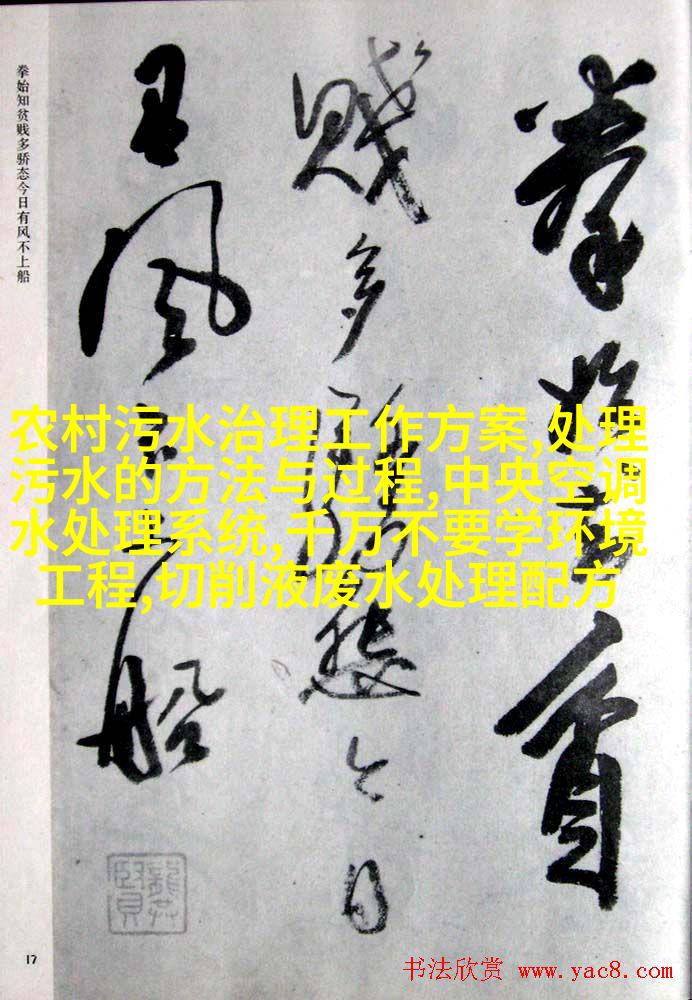 拳始知貧
賤多驕態今日
有風不上船
拳始知贫贱多骄态今日有风不上船
农村污水治理工作方案,处理
污水的方法与过程,中央空调
水处理系统,千万不要学环境
工程,切削液废水处理配方
17
书法欣赏 www.yac8.com